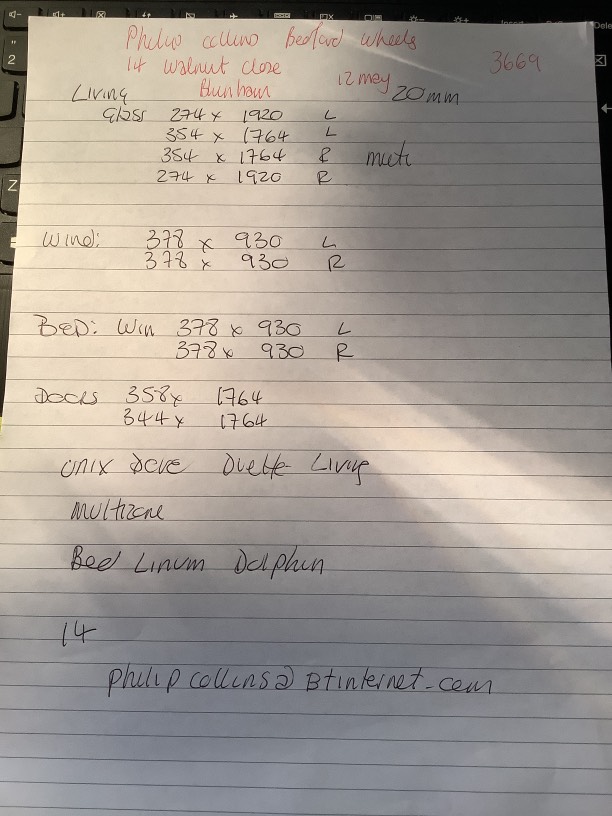 Philip collins Bedford Wheels
14 walnut close 12 may 3669
Living 20mm
Glass 274 x 1920 L
354 x 1764 L
354 x 1764 R
274 x 1920 R
Wind: 378 x 930 L
378 x 930 R
BeD: Win 378 x 930 L
378 x 930 R
Doors 358 x 1764
344 x 1764
Unix Dove Duette Living
multizone
Bed Linum Dolphin
14
philipcollins@Btinternet.com